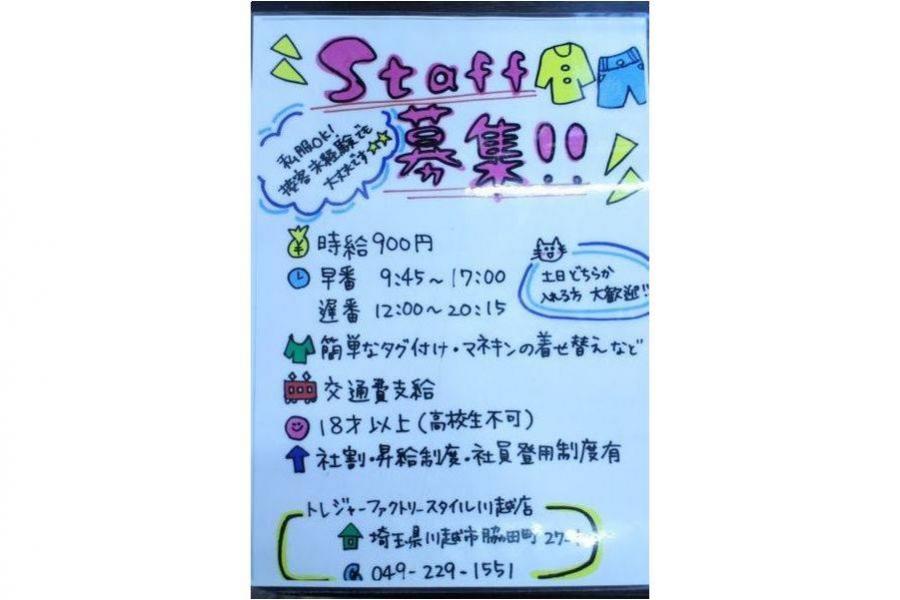 Staff
募集!!
私服OK!
接客未経験でも
大丈夫です
時給900円
早番 9:45〜17:00
遅番 12:00〜20:15
土日どちらか
入れる方 大歓迎!!
簡単なタグ付け・マネキンの着せ替えなど
交通費支給
18才以上(高校生不可)
社割・昇給制度・社員登用制度有
トレジャーファクトリースタイル川越店
埼玉県川越市脇田町
049-229-1551